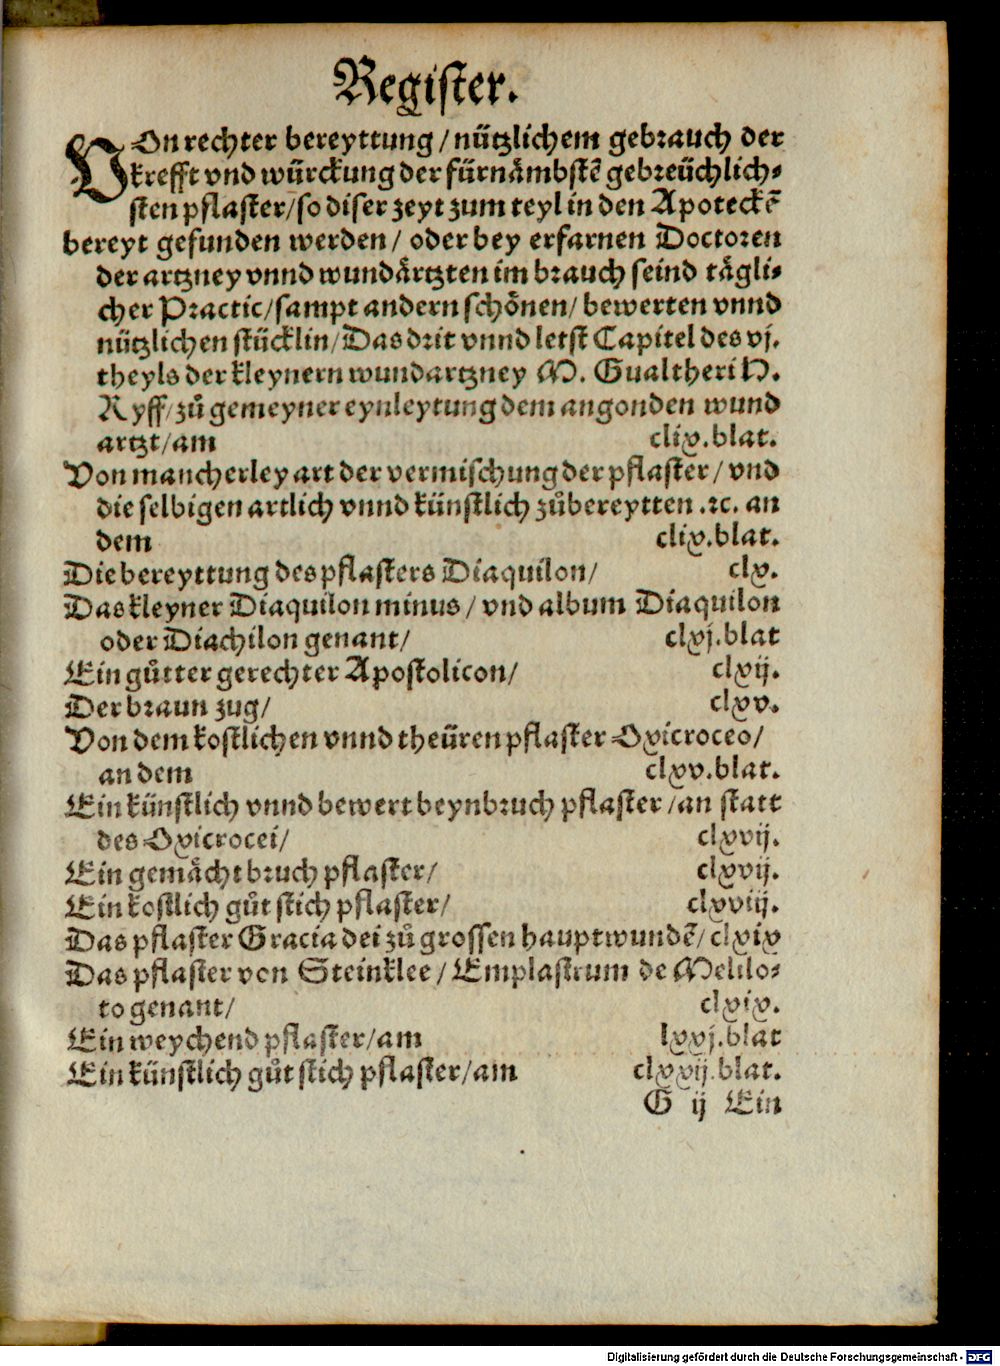 Register.
VOn rechter bereyttung / nützlichem gebrauch der
krefft vnd würckung der fürnämbstẽ gebreüchlich-
sten pflaster/so diser zeyt zum teyl in den Apoteckẽ
bereyt gefunden werden / oder bey erfarnen Doctoren
der artzney vnnd wundärtzten im brauch seind tägli-
cher Practic/sampt andern schönen/ bewerten vnnd
nützlichen stücklin/Das drit vnnd letst Capitel des vj.
theyls der kleynern wundartzney M. Gualtheri H.
Ryff/zů gemeyner eynleytung dem angonden wund
artzt/am clix.blat.
Von mancherley art der vermischung der pflaster/ vnd
die selbigen artlich vnnd künstlich zůbereytten .ꝛc. an
dem clix.blat.
Die bereyttung des pflasters Diaquilon/ clx.
Das kleyner Diaquilon minus/ vnd album Diaquilon
oder Diachilon genant/ clxj.blat
Ein gůtter gerechter Apostolicon/ clxij.
Der braun zug/ clxv.
Von dem kostlichen vnnd theüren pflaster Oxicroceo/
an dem clxv.blat.
Ein künstlich vnnd bewert beynbruch pflaster/an statt
des Oxicrocei/ clxvij.
Ein gemächt bruch pflaster/ clxvij.
Ein kostlich gůt stich pflaster/ clxviij.
Das pflaster Gracia dei zů grossen hauptwundẽ/ clxix
Das pflaster von Steinklee/ Emplastrum de Melilo-
to genant/ clxix.
Ein weychend pflaster/am lxxj.blat
Ein künstlich gůt stich pflaster/am clxxij.blat.
G ij Ein
Digitalisierung gefördert durch die Deutsche Forschungsgemeinschaft - DFG